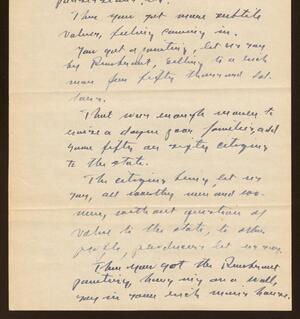 Then you get more subtile
values, feeling coming in.
You get a painting, let us say
by Rembrandt, selling to a rich
man for fifty thousand dol-
lars.
That was enough money to
raise a dozen poor families, add
some fifty or sixty citizens
to the state.
The citizens being, let us
say, all worthy men and wo-
men, without question of
value to the state, to other
people, producers let us say.
Then you got the Rembrandt
painting, hanging on a wall,
say in some rich man's house.